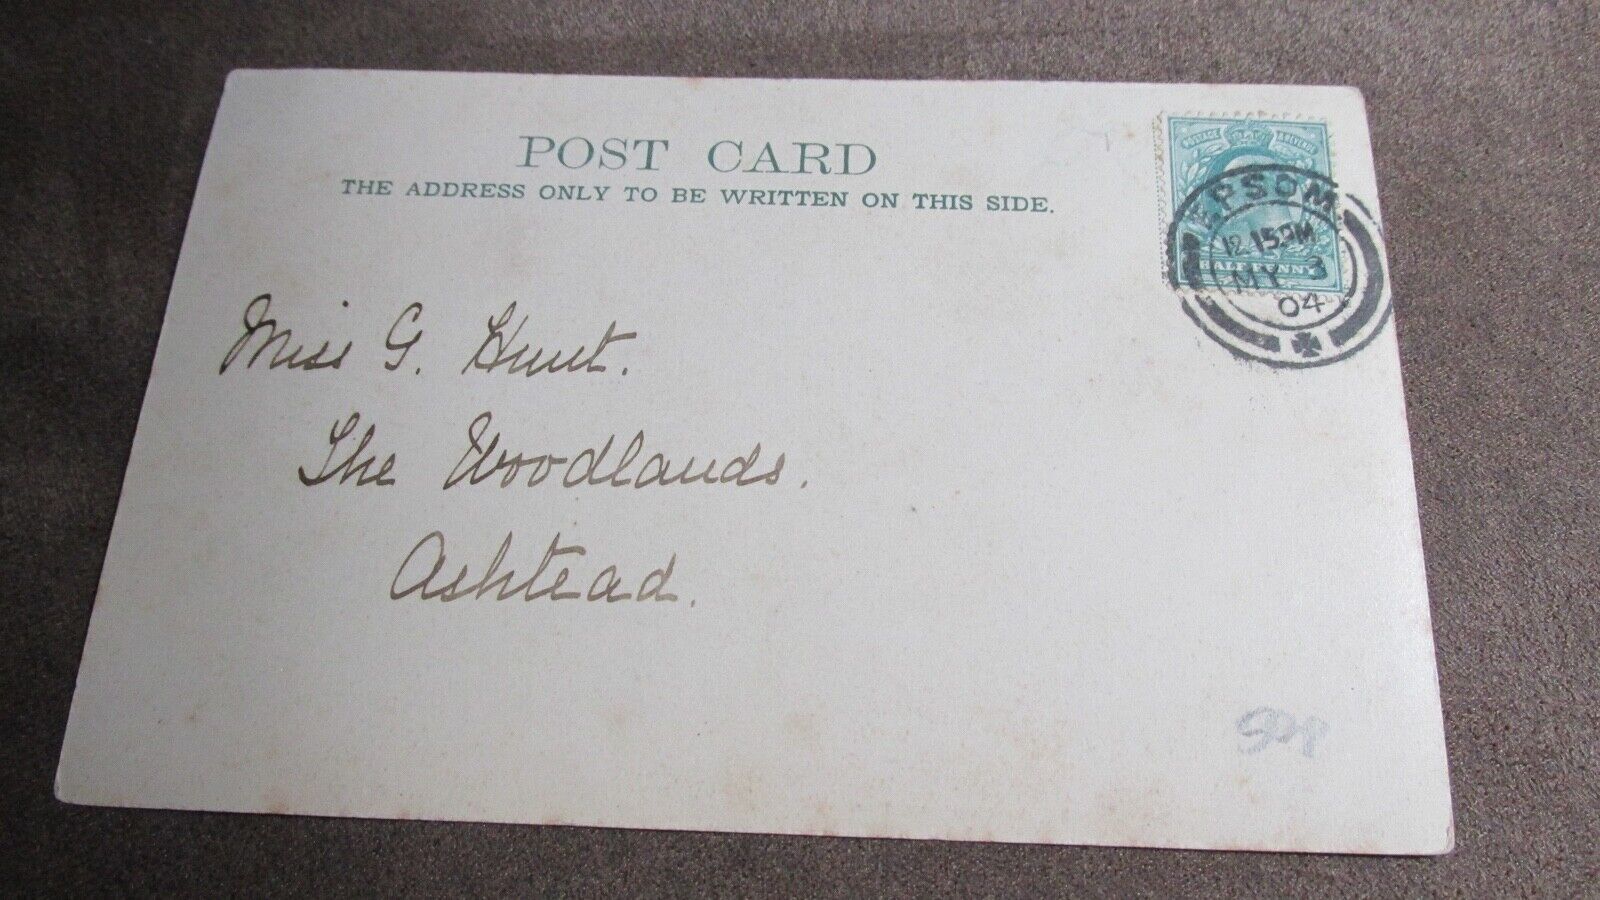 POST CARD
THE ADDRESS ONLY TO BE WRITTEN ON THIS SIDE.
POSTAGE & REVENUE
EPSOM
12.15PM
MY 3
04
HALFPENNY
Miss G. Hunt.
The Woodlands.
Ashtead.